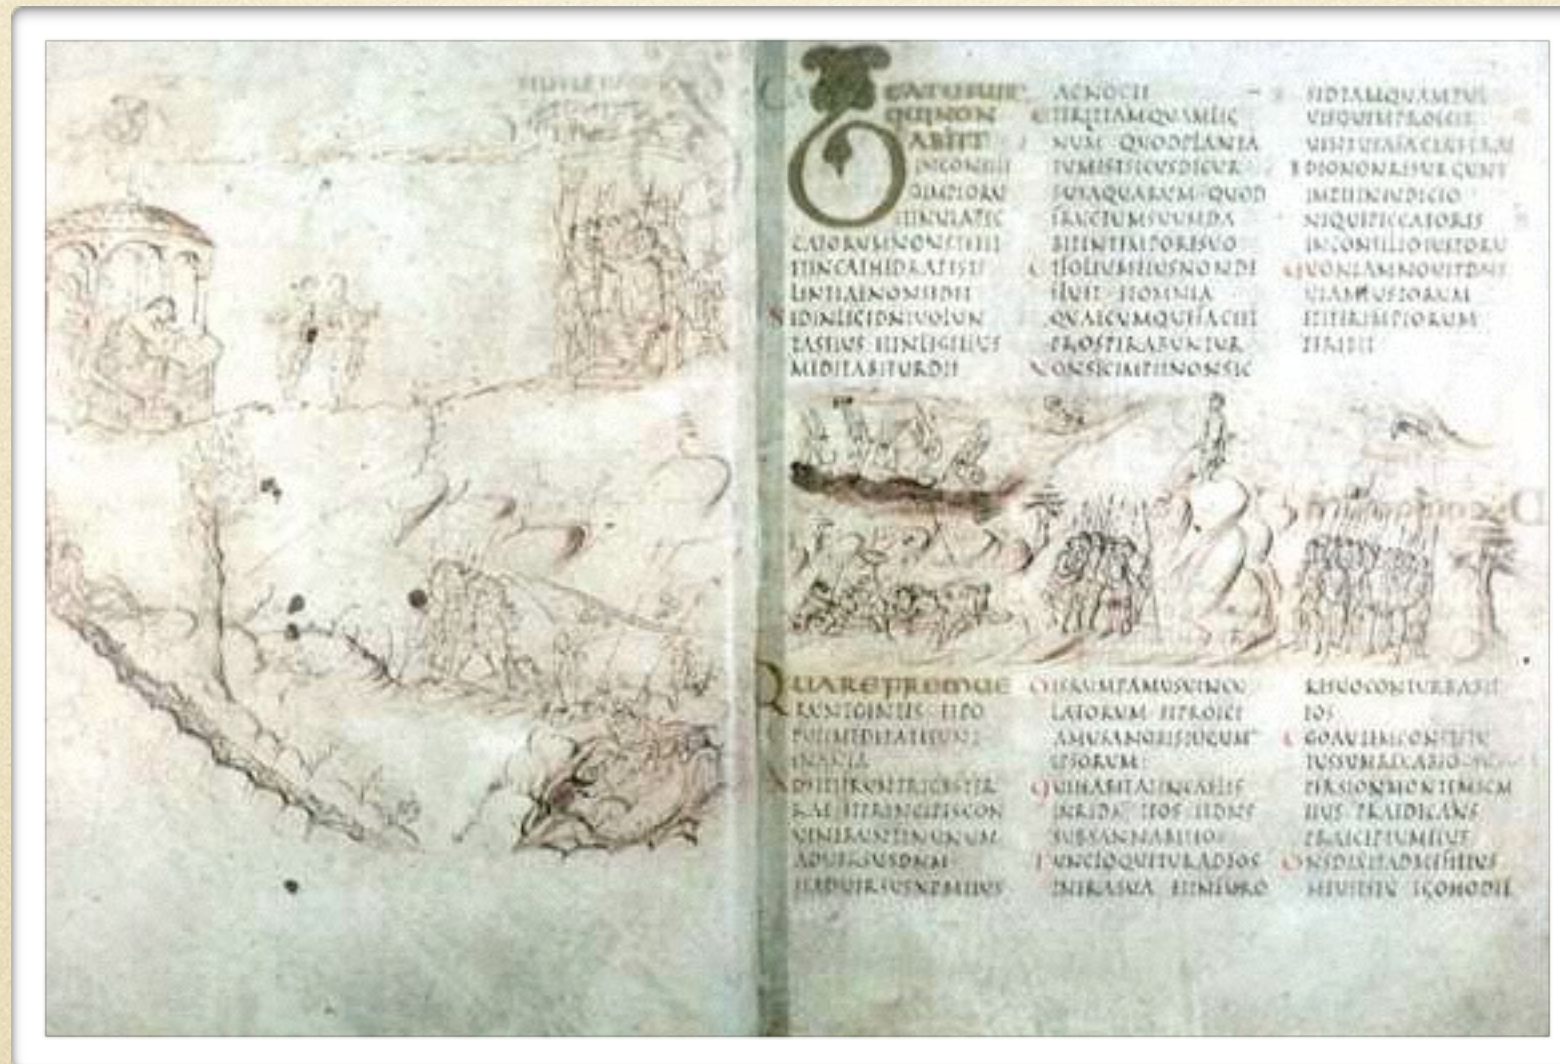 BEATUSUIR
QUINON
ABIIT
INCONSILI
OIMPIORU
ETINUIAPEC
CATORUMNONSTETIT
ETINCATHEDRAPESTI
LENTIAENONSEDIT
SEDINLEGEDNIUOLUN
TASEIUS ETINLEGEEIUS
MEDITABITURDIE
ACNOCTE
ETERITTAMQUAMLIG
NUM QUODPLANTA
TUMESTSECUSDECUR
SUSAQUARUM QUOD
FRUCTUMSUUMDA
BITINTEMPORESUO
ETFOLIUMEIUSNONDE
FLUET ETOMNIA
QUAECUMQUEFACIET
PROSPERABUNTUR
NONSICIMPIINONSIC
SEDTAMQUAMPUL
UISQUEMPROICIT
UENTUSAFACIETERRAE
IDEONONRESURGUNT
IMPIIINIUDICIO
NEQUEPECCATORES
INCONSILIOIUSTORU
QUONIAMNOUITDNS
UIAMIUSTORUM
ETITERIMPIORUM
PERIBIT
QUAREFREMUE
RUNTGENTES ETPO
PULIMEDITATISUNT
INANIA
ADSTITERUNTREGESTER
RAE ETPRINCIPESCON
UENERUNTINUNUM
ADUERSUSDNM
ETADUERSUSXPMEIUS
DISRUMPAMUSUINCU
LAEORUM ETPROICI
AMUSANOBISIUGUM
IPSORUM
QUIHABITATINCAELIS
INRIDET EOS ETDNS
SUBSANNABITEOS
TUNCLOQUETURADEOS
INIRASUA ETINFURO
RESUOCONTURBABIT
EOS
EGOAUTEMCONSTITU
TUSSUMREXABEO
PERSIONMONTEMSCM
EIUS PRAEDICANS
PRAECEPTUMEIUS
DNSDIXITADMEFILIUS
MEUSESTU EGOHODIE